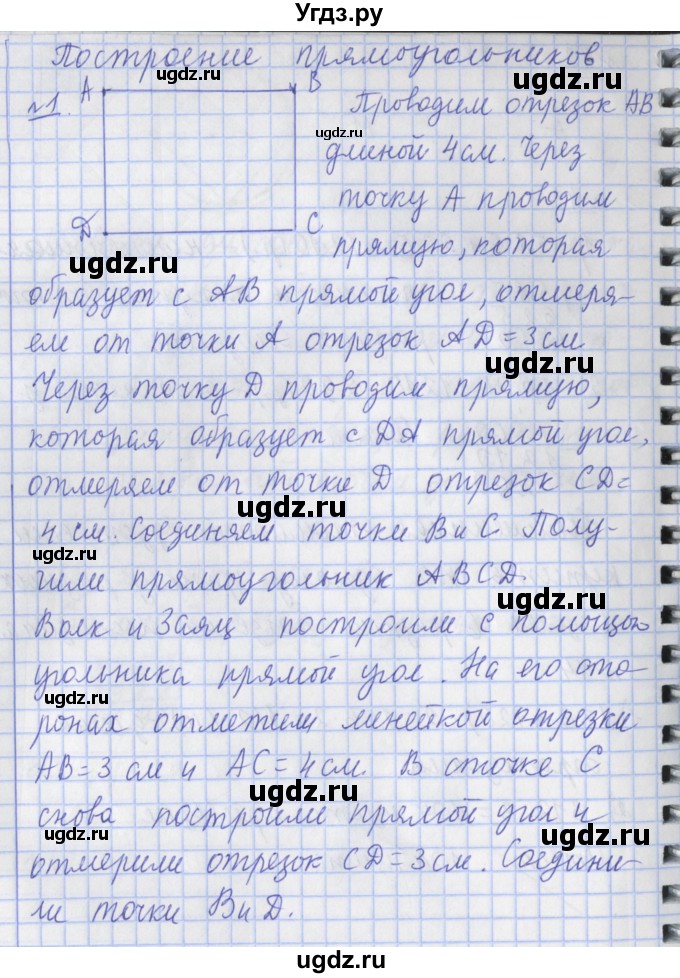 Угдз.ру
Построение прямоугольников
№1. A B Проводим отрезок AB
длиной 4 см. Через
точку A проводим
D C прямую, которая
образует с AB прямой угол, отмеря-
ем от точки A отрезок AD = 3 см
Через точку D проводим прямую,
которая образует с DA прямой угол,
отмеряем от точки D отрезок CD =
4 см. Соединяем точки B и C. Полу-
чили прямоугольник ABCD.
Волк и Заяц построили с помощью
угольника прямой угол. На его сто-
ронах отметили линейкой отрезки
AB = 3 см и AC = 4 см. В сточке C
снова построили прямой угол и
отмерили отрезок CD = 3 см. Соедини-
ли точки B и D.
ugdz.ru
ugdz.ru
ugdz.ru
ugdz.ru
ugdz.ru
ugdz.ru
ugdz.ru
ugdz.ru
ugdz.ru
ugdz.ru
ugdz.ru
ugdz.ru
ugdz.ru
ugdz.ru